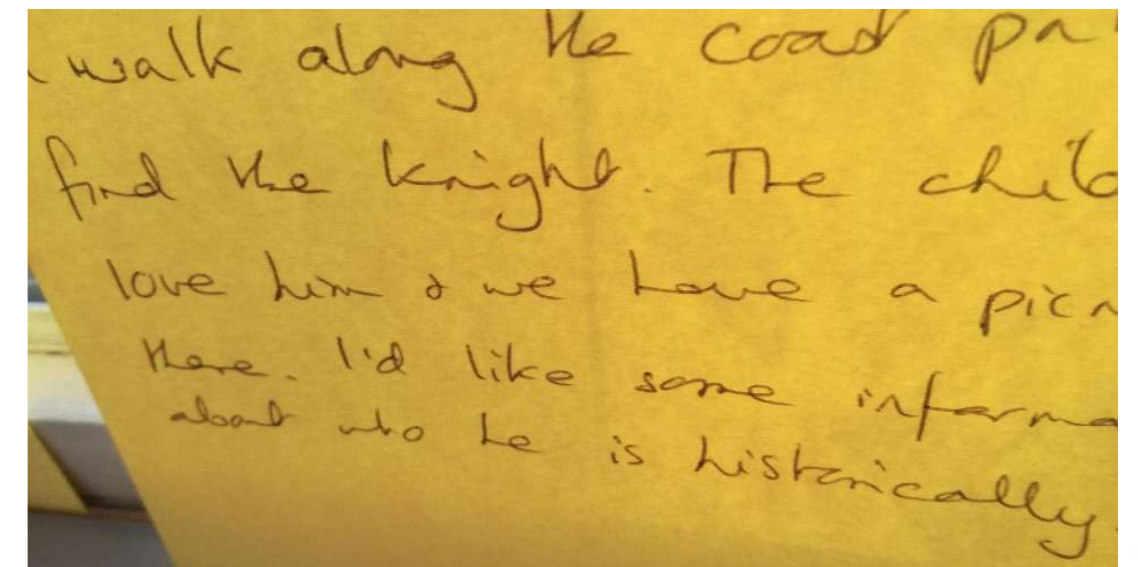 walk along the coast pa
find the knight. The child
love him & we have a picn
there. I'd like some informa
about who he is historically.